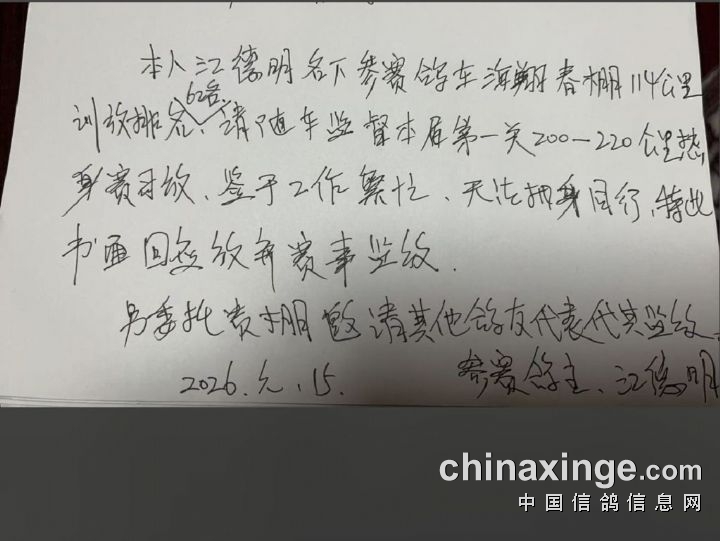 本人江德明名下参赛鸽在海翔春棚114公里
训放排名62名、请随车监督本届第一关200—220公里热
身赛司放、鉴于工作繁忙、无法抽身同行,特此
书面回复放弃赛事监放.
另委托贵棚邀请其他鸽友代表代其监放.
2026.元.15. 参赛鸽主、江德明
chinaxinge.com
中国信鸽信息网